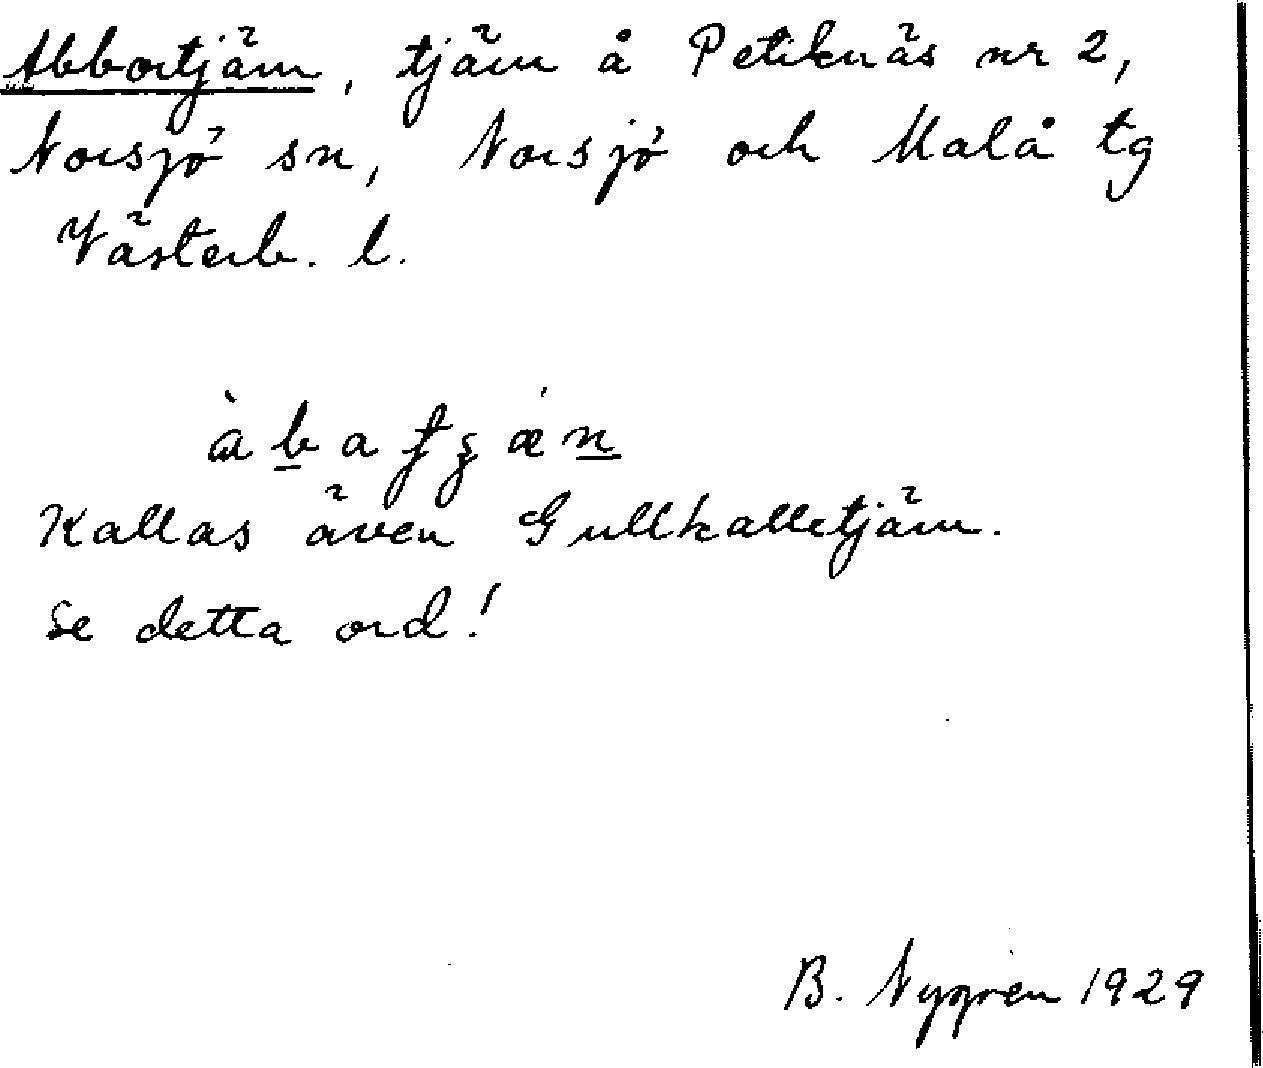 Abbortjärn, tjärn å Petiknäs nr 2,
Norsjö sn, Norsjö och Malå tg
Västerb. l.
Kallas även Gullkalletjärn.
Se detta ord!
B. Nygren 1929